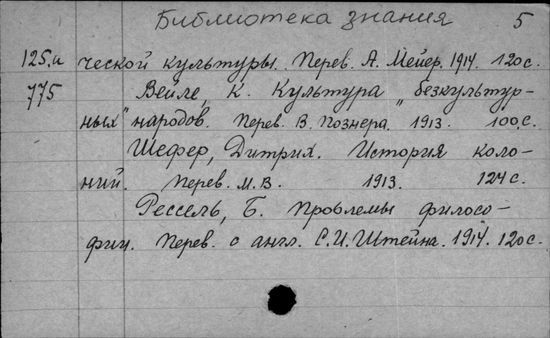 Библиотека знания 5
125.а ческой культуры. Перев. А. Мейер. 1914. 120 с.
775 Вейле, К. Культура „безкультур-
ных" народов. Перев. В. Познера. 1913. 100 с.
Шефер, Дитрих. История коло-
ний. Перев. М.В. 1913. 124 с.
Рессель, Б. Проблемы филосо-
фии. Перев. с англ. С.И. Штейна. 1914. 120 с.